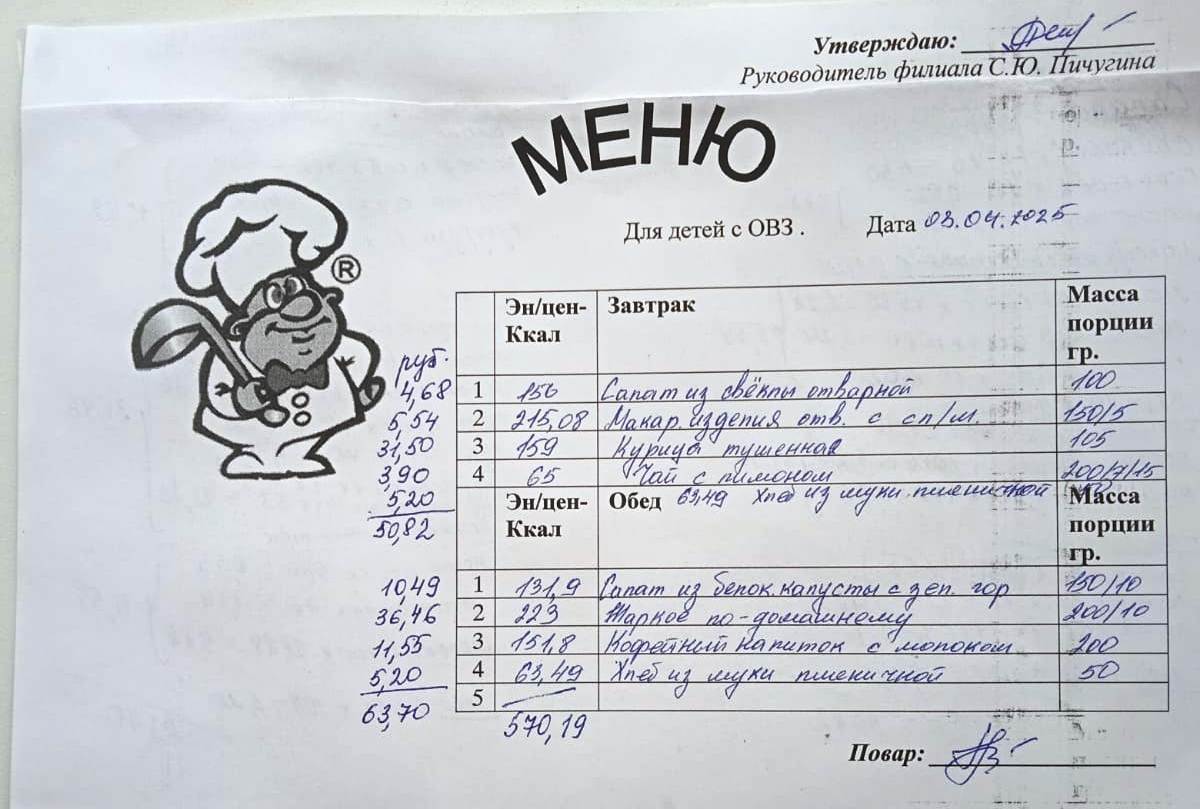 Утверждаю:
Руководитель филиала С.Ю. Пичугина
МЕНЮ
Для детей с ОВЗ . Дата 03.04.2025
®
Эн/цен-Ккал Завтрак Масса порции гр.
руб.
4,68 1 156 Салат из свёклы отварной 100
5,54 2 215,08 Макар. изделия отв. с сл/м. 150/5
31,50 3 159 Курица тушенная 105
3,90 4 65 Чай с лимоном 200/7/15
5,20 Эн/цен-Ккал Обед 63,49 Хлеб из муки пшеничной 50 Масса порции гр.
50,82
10,49 1 131,9 Салат из белок. капусты с зел. гор 150/10
36,46 2 223 Жаркое по-домашному 200/10
11,55 3 151,8 Кофейный напиток с молоком 200
5,20 4 63,49 Хлеб из муки пшеничной 50
63,70 5
570,19
Повар: